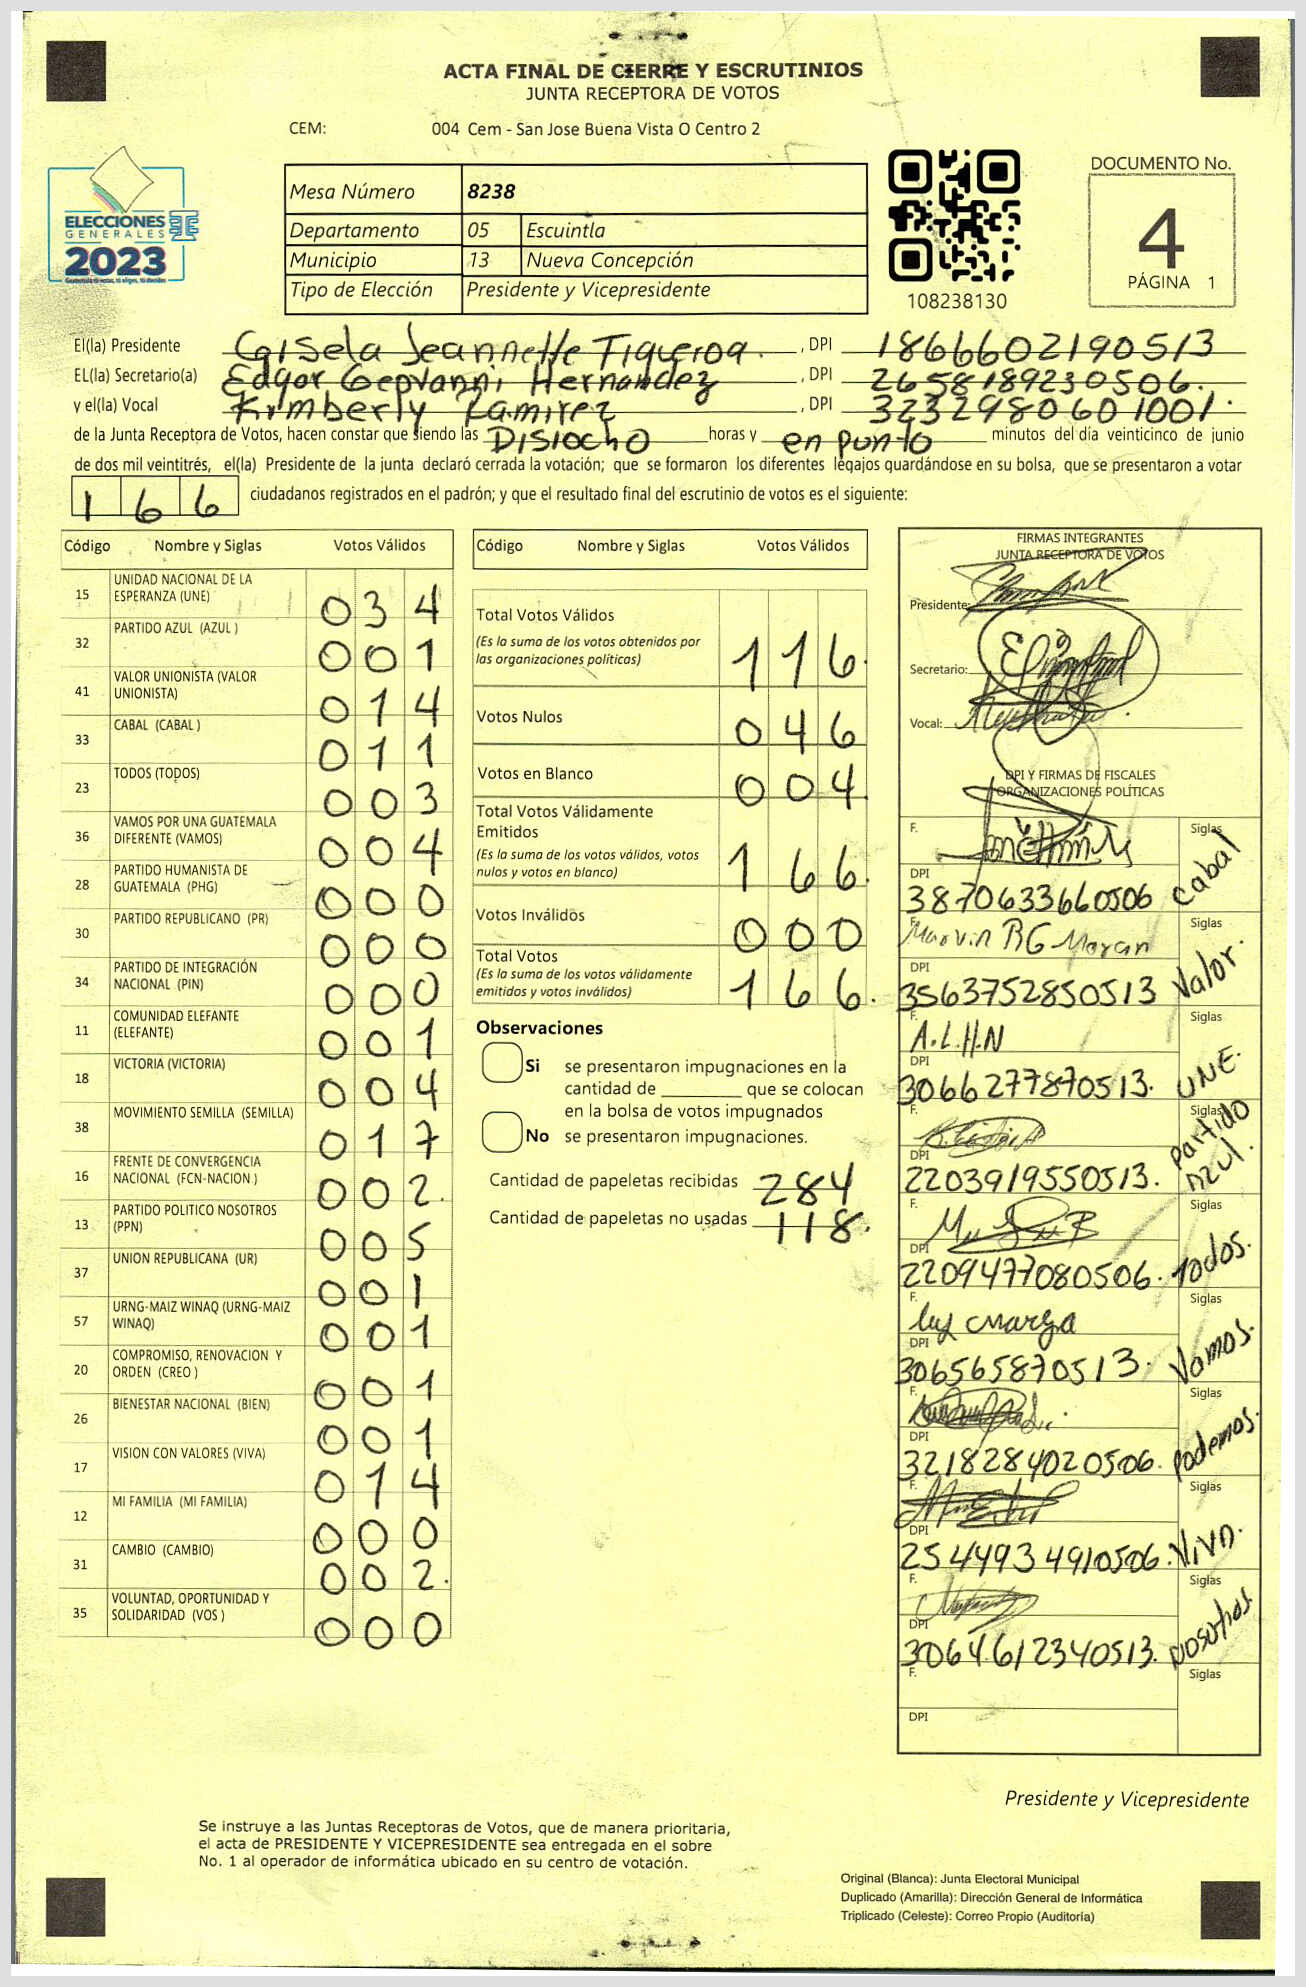 ACTA FINAL DE CIERRE Y ESCRUTINIOS
JUNTA RECEPTORA DE VOTOS
CEM: 004 Cem - San Jose Buena Vista O Centro 2
ELECCIONES
GENERALES
2023
Mesa Número 8238
Departamento 05 Escuintla
Municipio 13 Nueva Concepción
Tipo de Elección Presidente y Vicepresidente
108238130
DOCUMENTO No.
4
PÁGINA 1
El(la) Presidente Gisela Jeannette Figueroa. , DPI 1866602190513
EL(la) Secretario(a) Edgar Geovanni Hernandez , DPI 2658189230506.
y el(la) Vocal Kimberly Ramirez , DPI 3232980601001.
de la Junta Receptora de Votos, hacen constar que siendo las Disiocho horas y en punto minutos del día veinticinco de junio
de dos mil veintitrés, el(la) Presidente de la junta declaró cerrada la votación; que se formaron los diferentes legajos guardándose en su bolsa, que se presentaron a votar
166 ciudadanos registrados en el padrón; y que el resultado final del escrutinio de votos es el siguiente:
Código Nombre y Siglas Votos Válidos
15 UNIDAD NACIONAL DE LA
ESPERANZA (UNE) 034
32 PARTIDO AZUL (AZUL ) 001
41 VALOR UNIONISTA (VALOR
UNIONISTA) 014
33 CABAL (CABAL ) 011
23 TODOS (TODOS) 003
36 VAMOS POR UNA GUATEMALA
DIFERENTE (VAMOS) 004
28 PARTIDO HUMANISTA DE
GUATEMALA (PHG) 000
30 PARTIDO REPUBLICANO (PR) 000
34 PARTIDO DE INTEGRACIÓN
NACIONAL (PIN) 000
11 COMUNIDAD ELEFANTE
(ELEFANTE) 001
18 VICTORIA (VICTORIA) 004
38 MOVIMIENTO SEMILLA (SEMILLA) 017
16 FRENTE DE CONVERGENCIA
NACIONAL (FCN-NACION ) 002.
13 PARTIDO POLITICO NOSOTROS
(PPN) 005
37 UNION REPUBLICANA (UR) 001
57 URNG-MAIZ WINAQ (URNG-MAIZ
WINAQ) 001
20 COMPROMISO, RENOVACION Y
ORDEN (CREO ) 001
26 BIENESTAR NACIONAL (BIEN) 001
17 VISION CON VALORES (VIVA) 014
12 MI FAMILIA (MI FAMILIA) 000
31 CAMBIO (CAMBIO) 002.
35 VOLUNTAD, OPORTUNIDAD Y
SOLIDARIDAD (VOS ) 000
Código Nombre y Siglas Votos Válidos
Total Votos Válidos
(Es la suma de los votos obtenidos por
las organizaciones políticas) 116.
Votos Nulos 046
Votos en Blanco 004.
Total Votos Válidamente
Emitidos
(Es la suma de los votos válidos, votos
nulos y votos en blanco) 166.
Votos Inválidos 000
Total Votos
(Es la suma de los votos válidamente
emitidos y votos inválidos) 166.
Observaciones
Si se presentaron impugnaciones en la
cantidad de ________ que se colocan
en la bolsa de votos impugnados
No se presentaron impugnaciones.
Cantidad de papeletas recibidas 284
Cantidad de papeletas no usadas 118.
FIRMAS INTEGRANTES
JUNTA RECEPTORA DE VOTOS
Presidente:
Secretario:
Vocal:
DPI Y FIRMAS DE FISCALES
ORGANIZACIONES POLÍTICAS
F. Siglas
DPI
3870633660506 Cabal
F. Marvin RG Moran Siglas
DPI
3563752850513 Valor.
F. A.L.H.N Siglas
DPI
3066277870513. UNE.
F. Siglas
DPI
2203919550513. Partido Azul.
F. Siglas
DPI
2209477080506. Todos.
F. Siglas
DPI
306565870513. Vamos.
F. Siglas
DPI
3218284020506. Podemos.
F. Siglas
DPI
2544934910506. VIVA.
F. Siglas
DPI
3064612340513. Nosotros.
F. Siglas
DPI
Presidente y Vicepresidente
Se instruye a las Juntas Receptoras de Votos, que de manera prioritaria,
el acta de PRESIDENTE Y VICEPRESIDENTE sea entregada en el sobre
No. 1 al operador de informática ubicado en su centro de votación.
Original (Blanca): Junta Electoral Municipal
Duplicado (Amarilla): Dirección General de Informática
Triplicado (Celeste): Correo Propio (Auditoría)